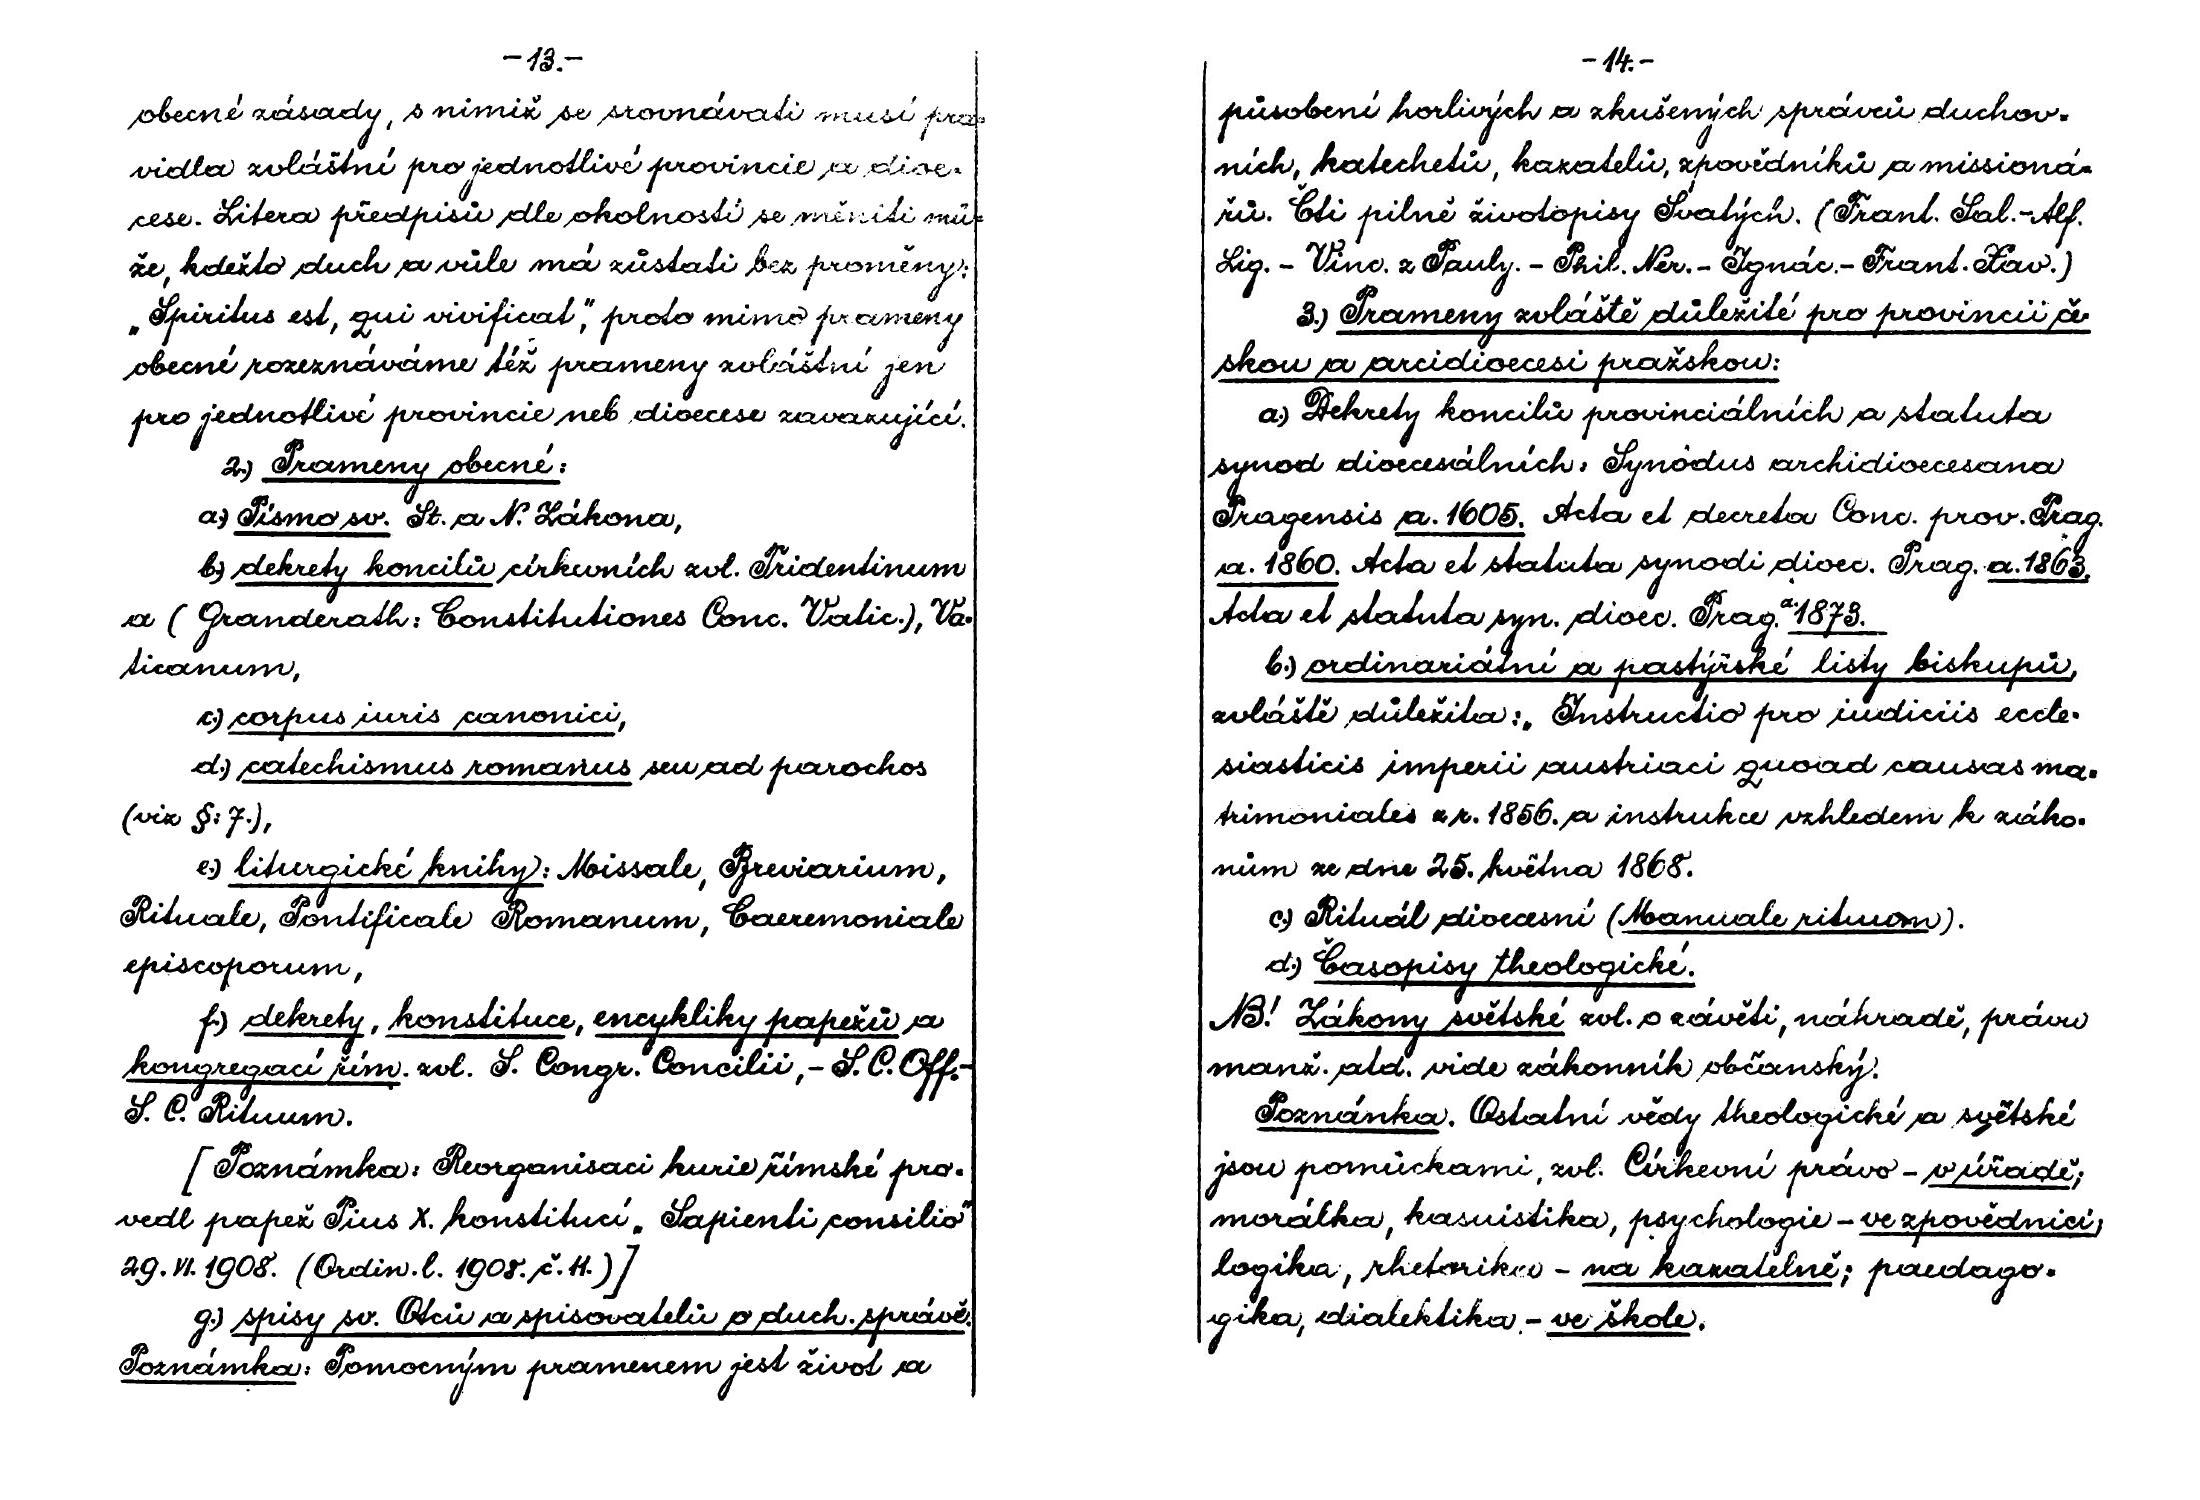 -13.-
obecné zásady, s nimiž se srovnávati musí pra-
vidla zvláštní pro jednotlivé provincie a dioe-
cese. Litera předpisů dle okolností se měniti mů-
že, kdežto duch a vůle má zůstati bez proměny:
„Spiritus est, qui vivificat“, proto mimo prameny
obecné rozeznáváme též prameny zvláštní jen
pro jednotlivé provincie neb dioecese zavazující.
2.) Prameny obecné:
a.) Písmo sv. St. a N. Zákona,
b.) dekrety koncilů církevních zvl. Tridentinum
a ( Granderath: Constitutiones Conc. Vatic.), Va-
ticanum,
c.) corpus iuris canonici,
d.) catechismus romanus seu ad parochos
(viz §: 7.),
e.) liturgické knihy: Missale, Breviarium,
Rituale, Pontificale Romanum, Caeremoniale
episcoporum,
f.) dekrety, konstituce, encykliky papežů a
kongregací řím. zvl. S. Congr. Concilii,- S. C. Off.-
S. C. Rituum.
[ Poznámka: Reorganisaci kurie římské pro-
vedl papež Pius X. konstitucí „ Sapienti consilio“
29. VI. 1908. (Ordin. l. 1908. č. 11.)]
g.) spisy sv. Otců a spisovatelů o duch. správě.
Poznámka: Pomocným pramenem jest život a
-14.-
působení horlivých a zkušených správců duchov-
ních, katechetů, kazatelů, zpovědníků a missioná-
řů. Čti pilně životopisy Svatých. (Frant. Sal.-Alf.
Lig. - Vinc. z Pauly. - Phil. Ner. - Ignác. - Frant. Xav.)
3.) Prameny zvláště důležité pro provincii če-
skou a arcidioecesi pražskou:
a.) Dekrety koncilů provinciálních a statuta
synod dioecesálních: Synodus archidioecesana
Pragensis a. 1605. Acta et decreta Conc. prov. Prag.
a. 1860. Acta et statuta synodi dioec. Prag. a. 1863.
Acta et statuta syn. dioec. Prag. a. 1873.
b.) ordinariátní a pastýřské listy biskupů,
zvláště důležita: „ Instructio pro iudiciis eccle-
siasticis imperii austriaci quoad causas ma-
trimoniales z r. 1856. a instrukce vzhledem k záko-
nům ze dne 25. května 1868.
c.) Rituál dioecesní (Manuale rituum).
d.) Časopisy theologické.
NB! Zákony světské zvl. o závěti, náhradě, právu
manž. atd. vide zákonník občanský.
Poznánka. Ostatní vědy theologické a světské
jsou pomůckami, zvl. Církevní právo - v úřadě;
morálka, kasuistika, psychologie - ve zpovědnici;
logika, rhetorika - na kazatelně; paedago-
gika, dialektika - ve škole.